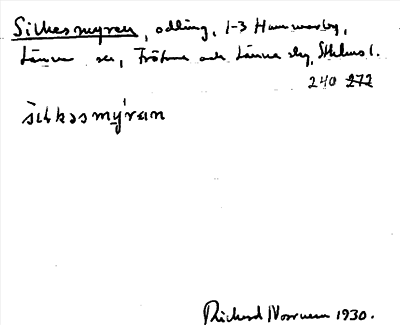 Silkesmyren, odling, 1-3 Hammarby,
Länna sn, Fröåkers och Länna skg, Sthlms l.
240 272
silkəsmỳran
Rickard Norman 1930.